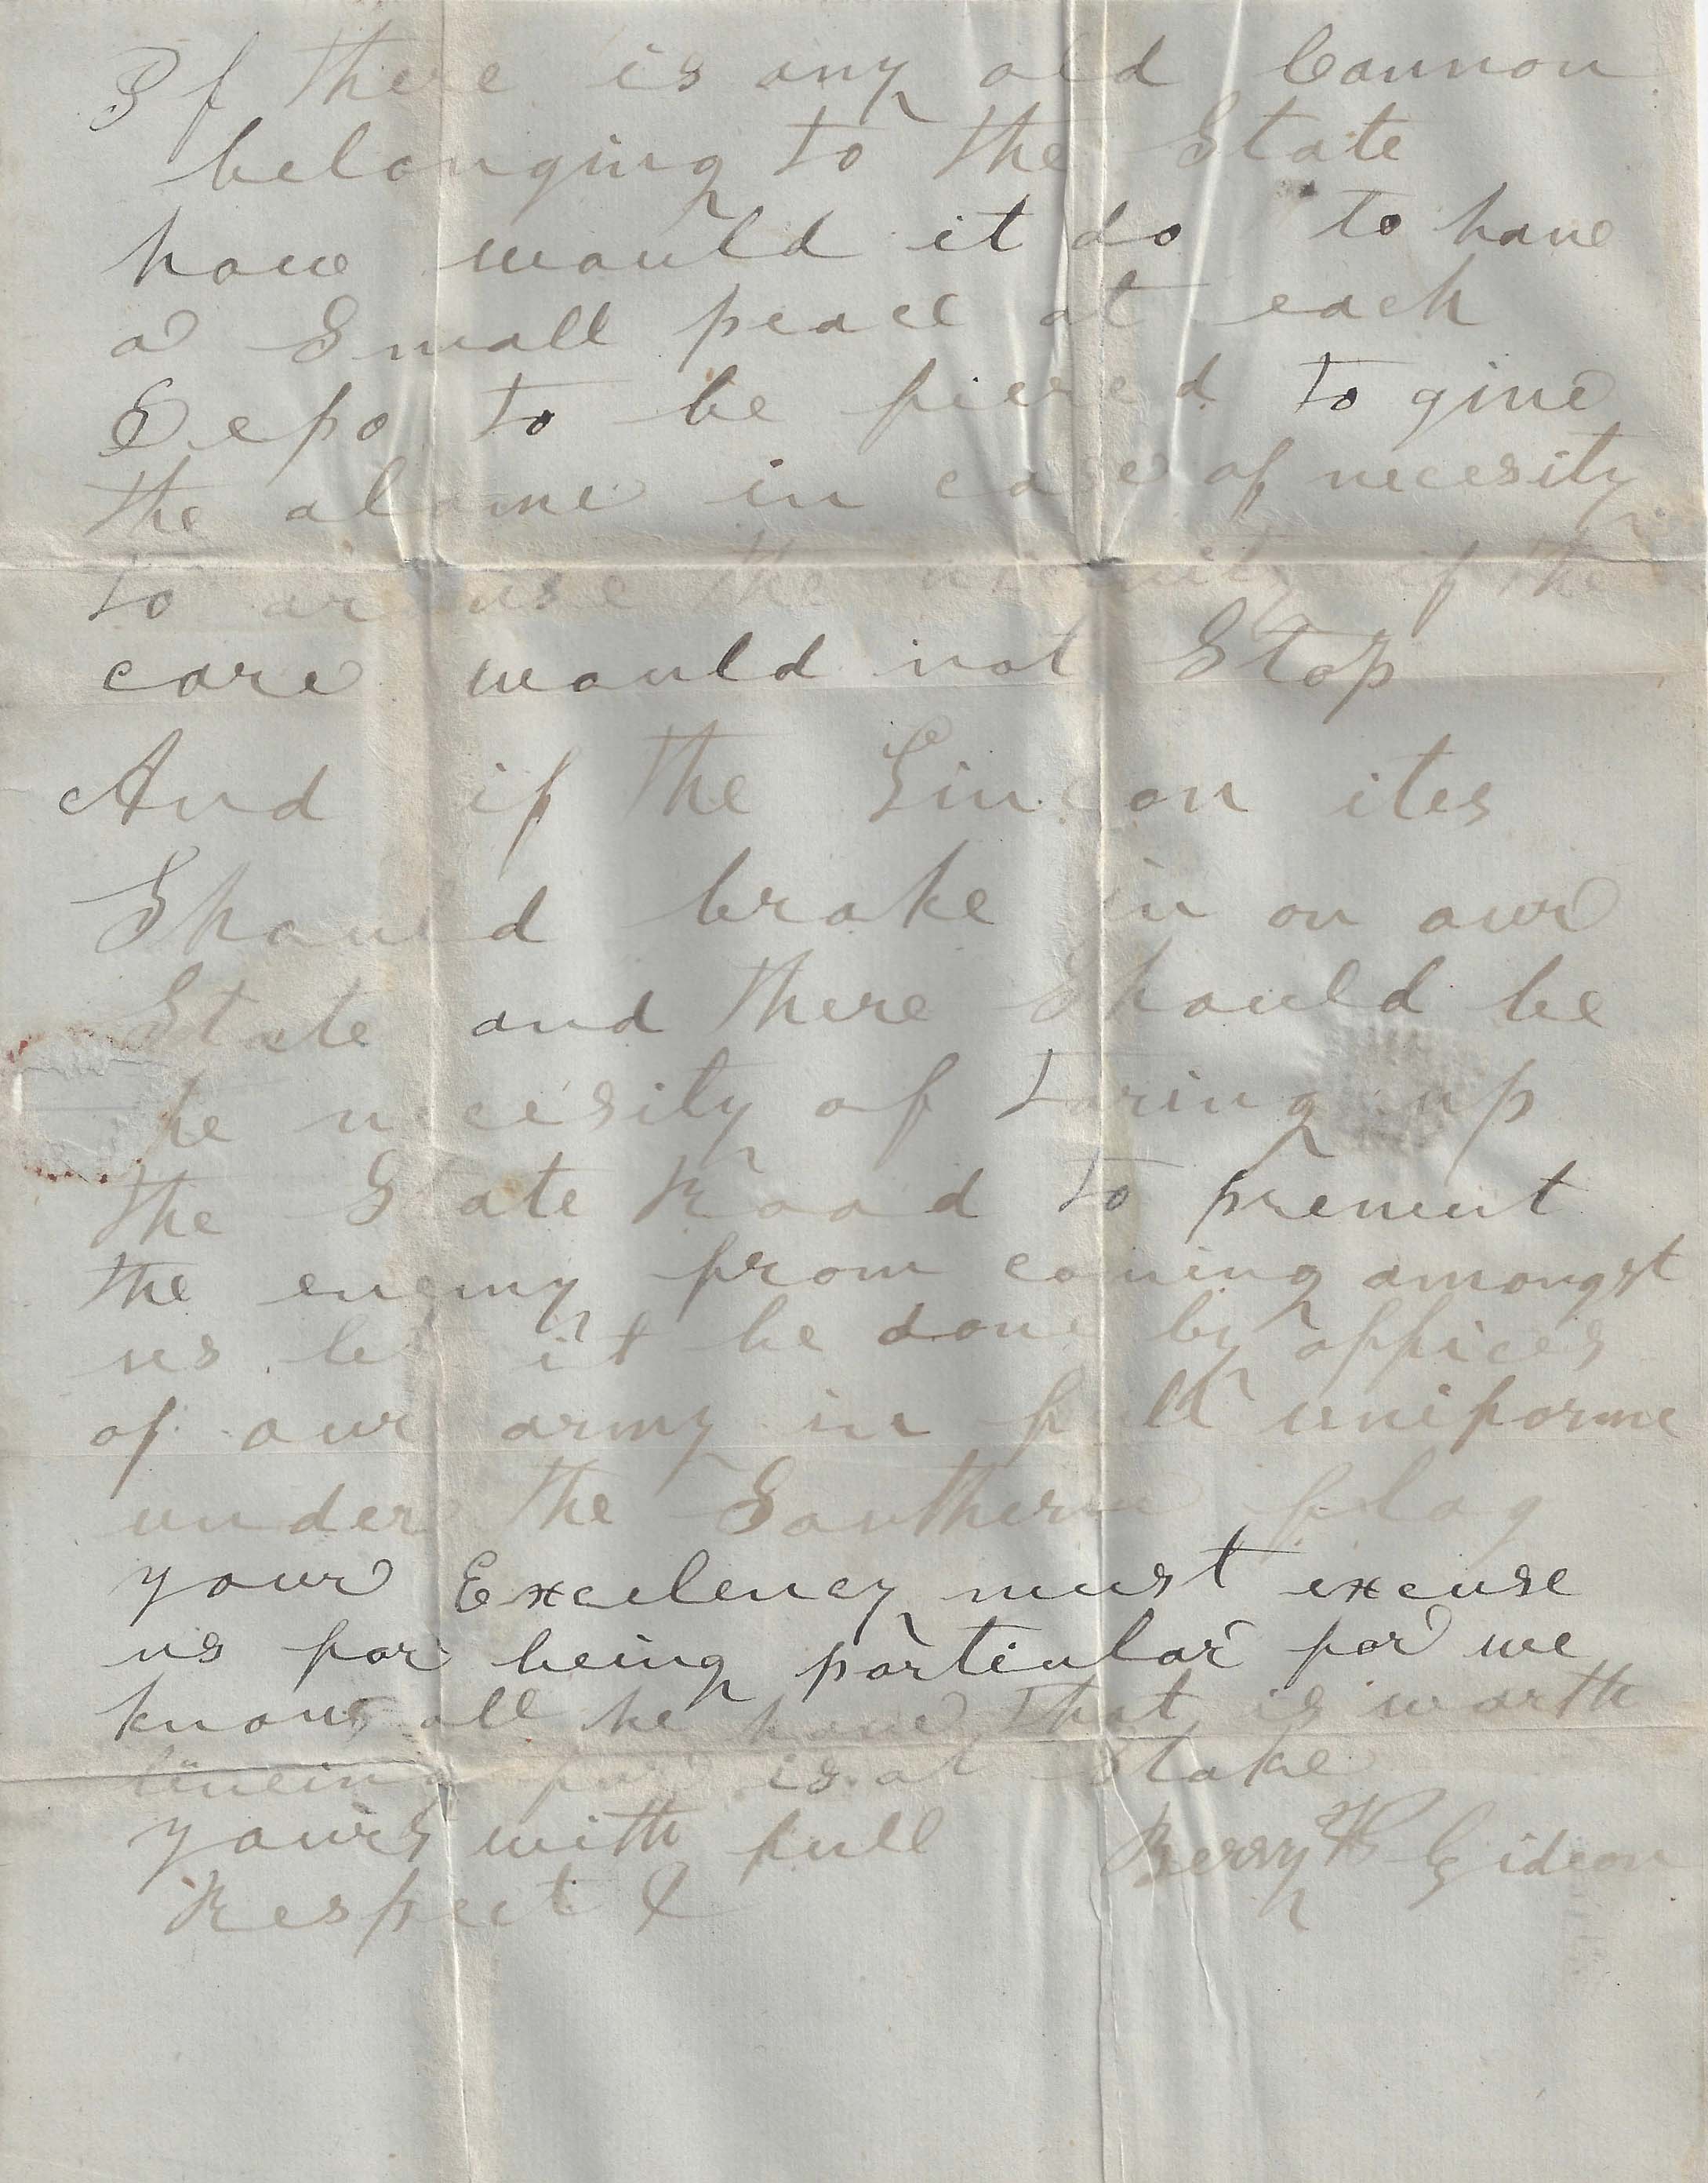 If there is any old Cannon
belonging to the State
how would it do to have
a Small peace at each
Depo to be fiered to give
the alarme in case of necesity
to arouse the vicinity if the
care would not Stop
And if the Lincon ites
Should brake in on our
State and there Should be
he necesity of taring up
the State Road to prevent
the enemy from coming amongst
us let it be done by offices
of our army in full uniforme
under the Southern flag
your Excelency must excuse
us for being particular for we
know all he have that is worth
liveing for is at stake
yours with full Berry W Gideon
Respect &